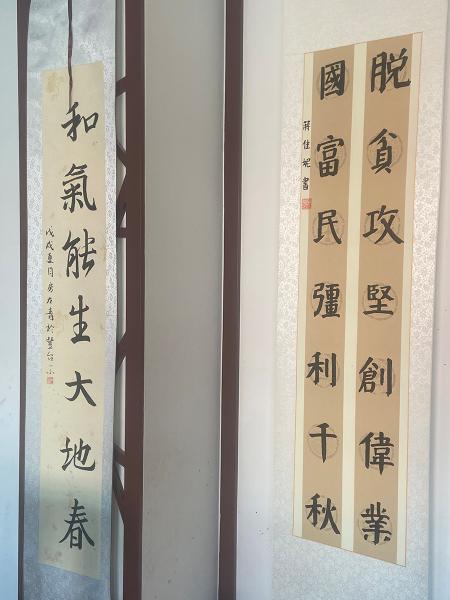 脱貧攻堅創偉業
國富民彊利千秋
蔣佳妮書
和氣能生大地春
戊戌夏月